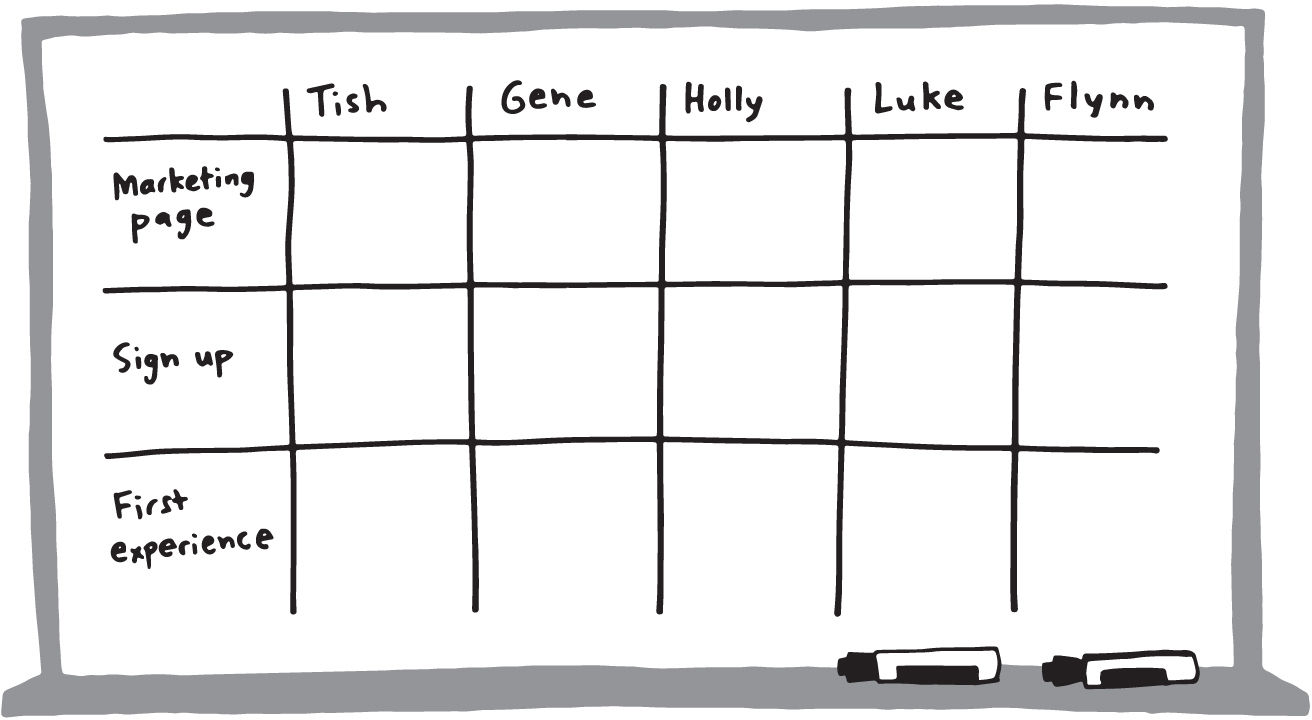 Tish Gene Holly Luke Flynn
Marketing
page
Sign up
First
experience